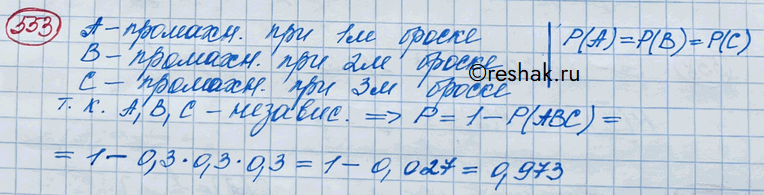 553 A – промахн. при 1м броске | P(A)=P(B)=P(C)
B – промахн. при 2м броске
©reshak.ru
C – промахн. при 3м броске
т. к. A, B, C – независ. => P = 1 – P(ABC) =
= 1 – 0,3·0,3·0,3 = 1 – 0,027 = 0,973